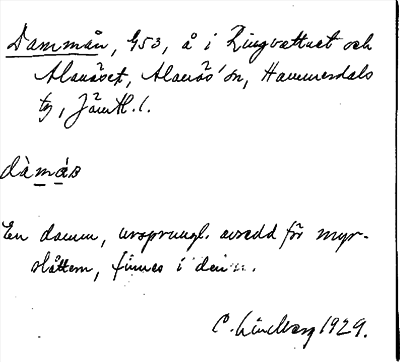 Dammån, G53, å i Ringvattnet och
Alanäset, Alanäs sn, Hammerdals
tg, Jämtl. l.
dàmás
En damm, ursprungl. avsedd för myr-
slåttern, finnes i den.
C. Lindberg 1929.